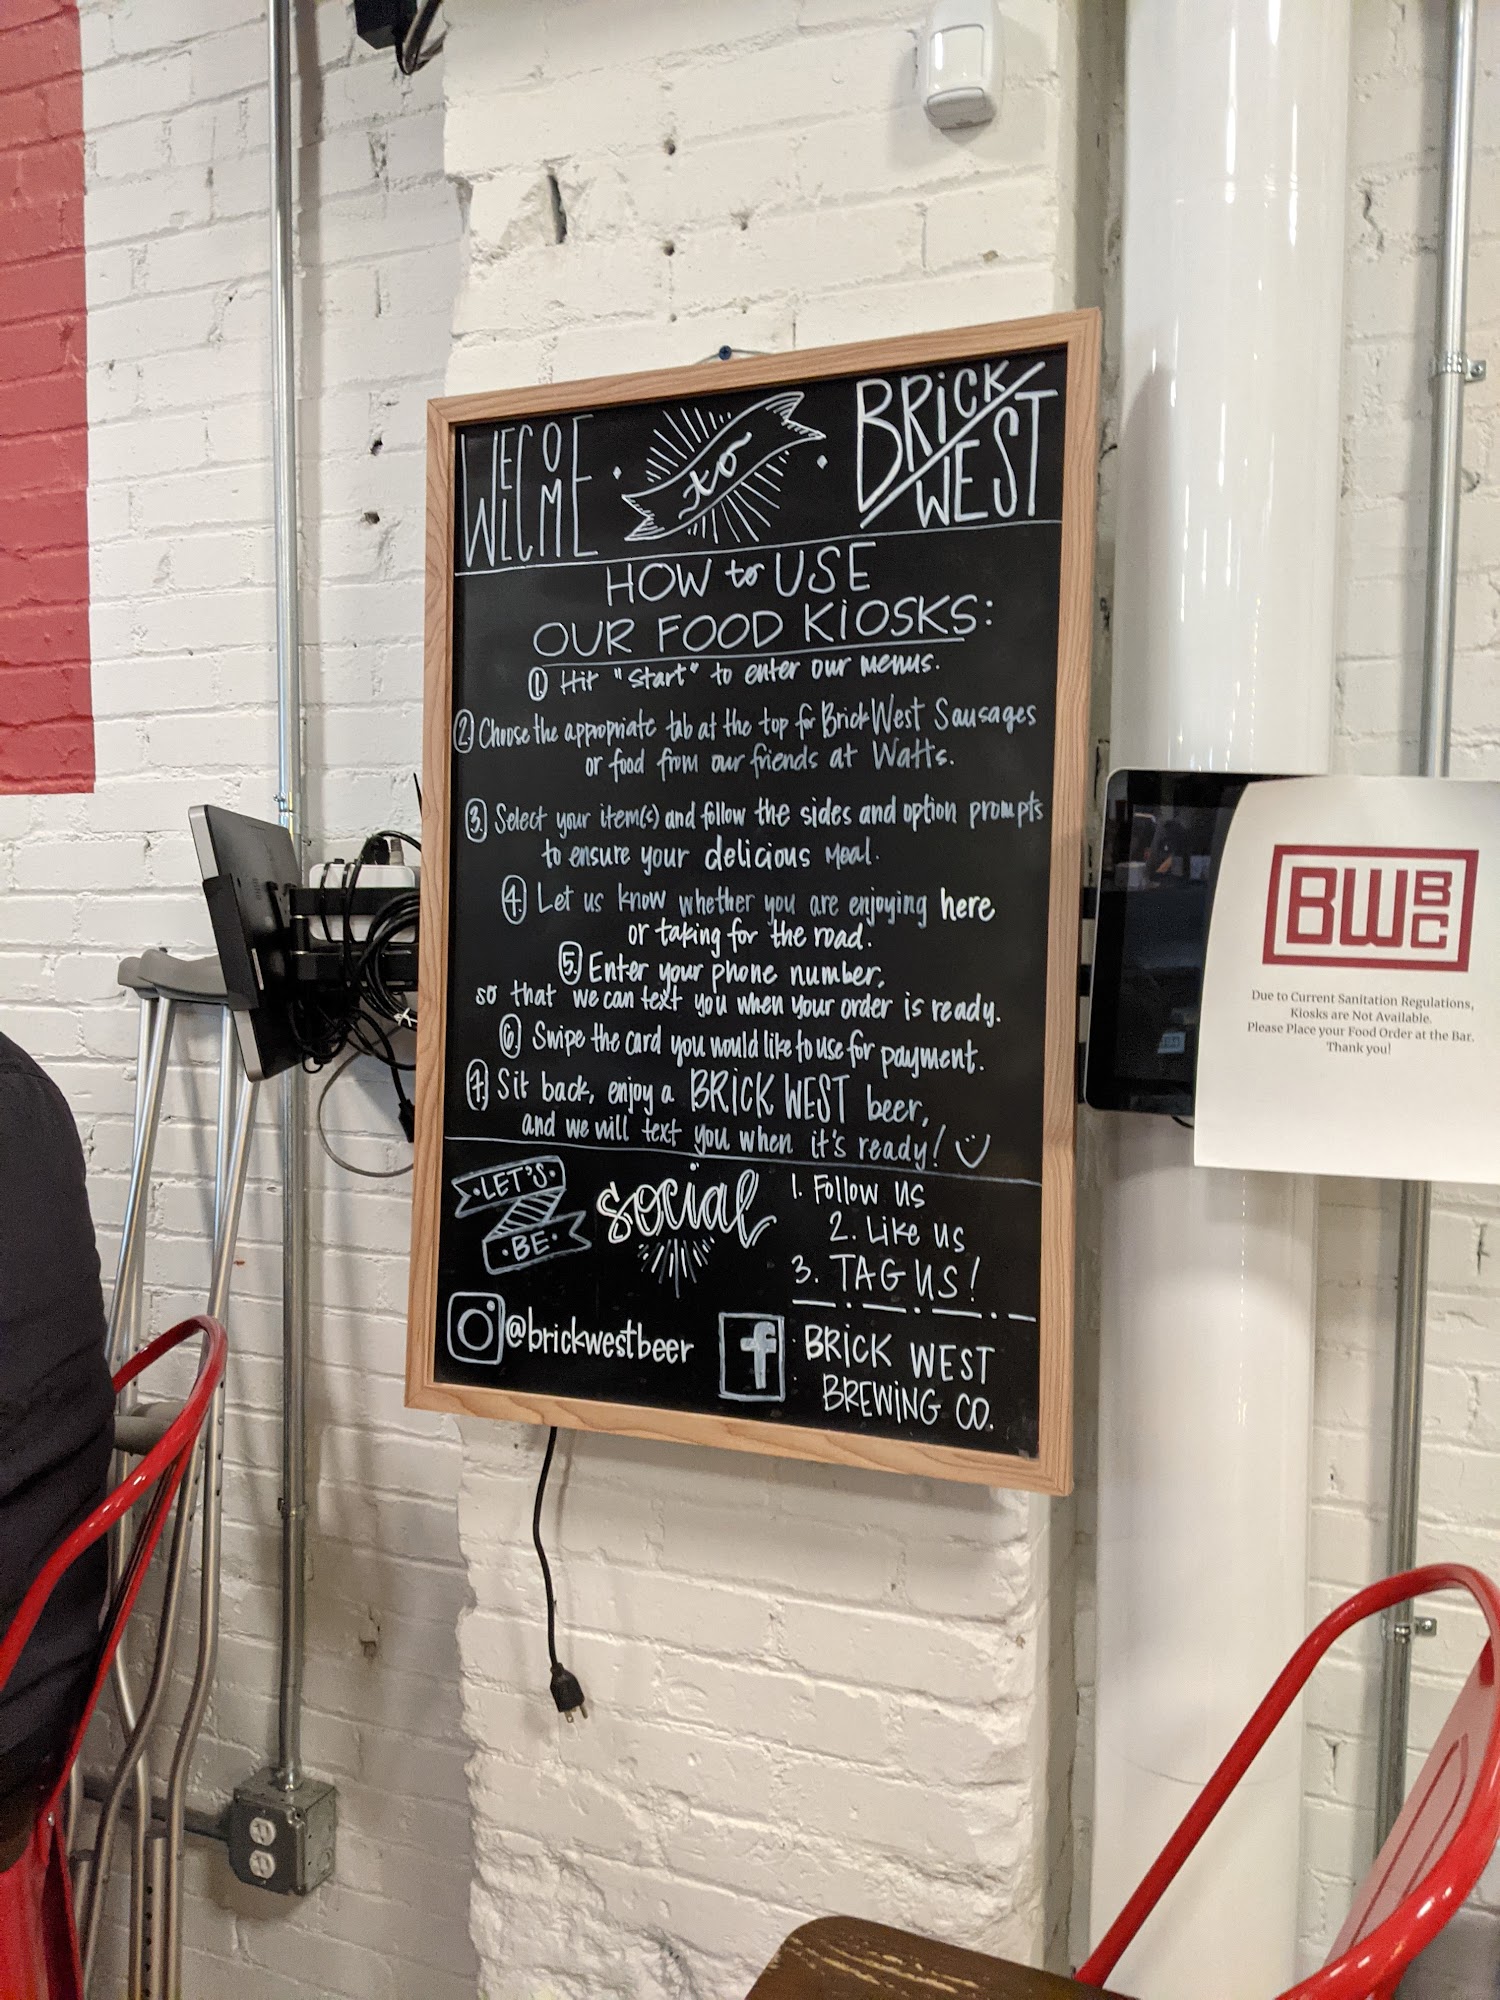 WELCOME to BRICK WEST
HOW to USE
OUR FOOD KIOSKS:
1. Hit "Start" to enter our menus.
2. Choose the appropriate tab at the top for Brick West Sausages
or food from our friends at Watts.
3. Select your item(s) and follow the sides and option prompts
to ensure your delicious meal.
4. Let us know whether you are enjoying here
or taking for the road.
5. Enter your phone number,
so that we can text you when your order is ready.
6. Swipe the card you would like to use for payment.
7. Sit back, enjoy a BRICK WEST beer,
and we will text you when it's ready!
LET'S BE social
1. Follow us
2. Like us
3. TAG US!
@brickwestbeer
f BRICK WEST
BREWING CO.
BWBC
Due to Current Sanitation Regulations,
Kiosks are Not Available.
Please Place your Food Order at the Bar.
Thank you!